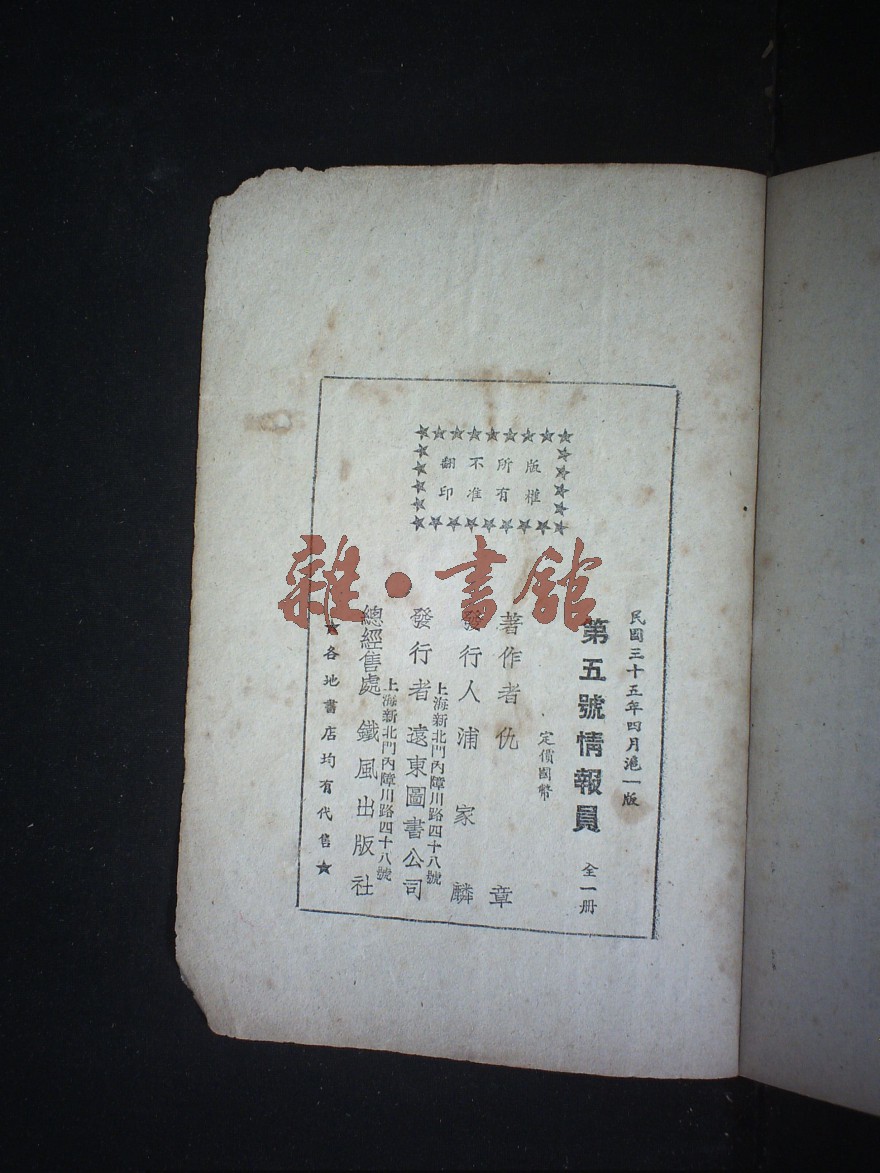 版權
所有
不准
翻印
民國三十五年四月滬一版
第五號情報員 全一冊
定價國幣
著作者 仇章
發行人 浦家麟
上海新北門內障川路四十八號
發行者 遠東圖書公司
上海新北門內障川路四十八號
總經售處 鐵風出版社
★各地書店均有代售★
雜·書館